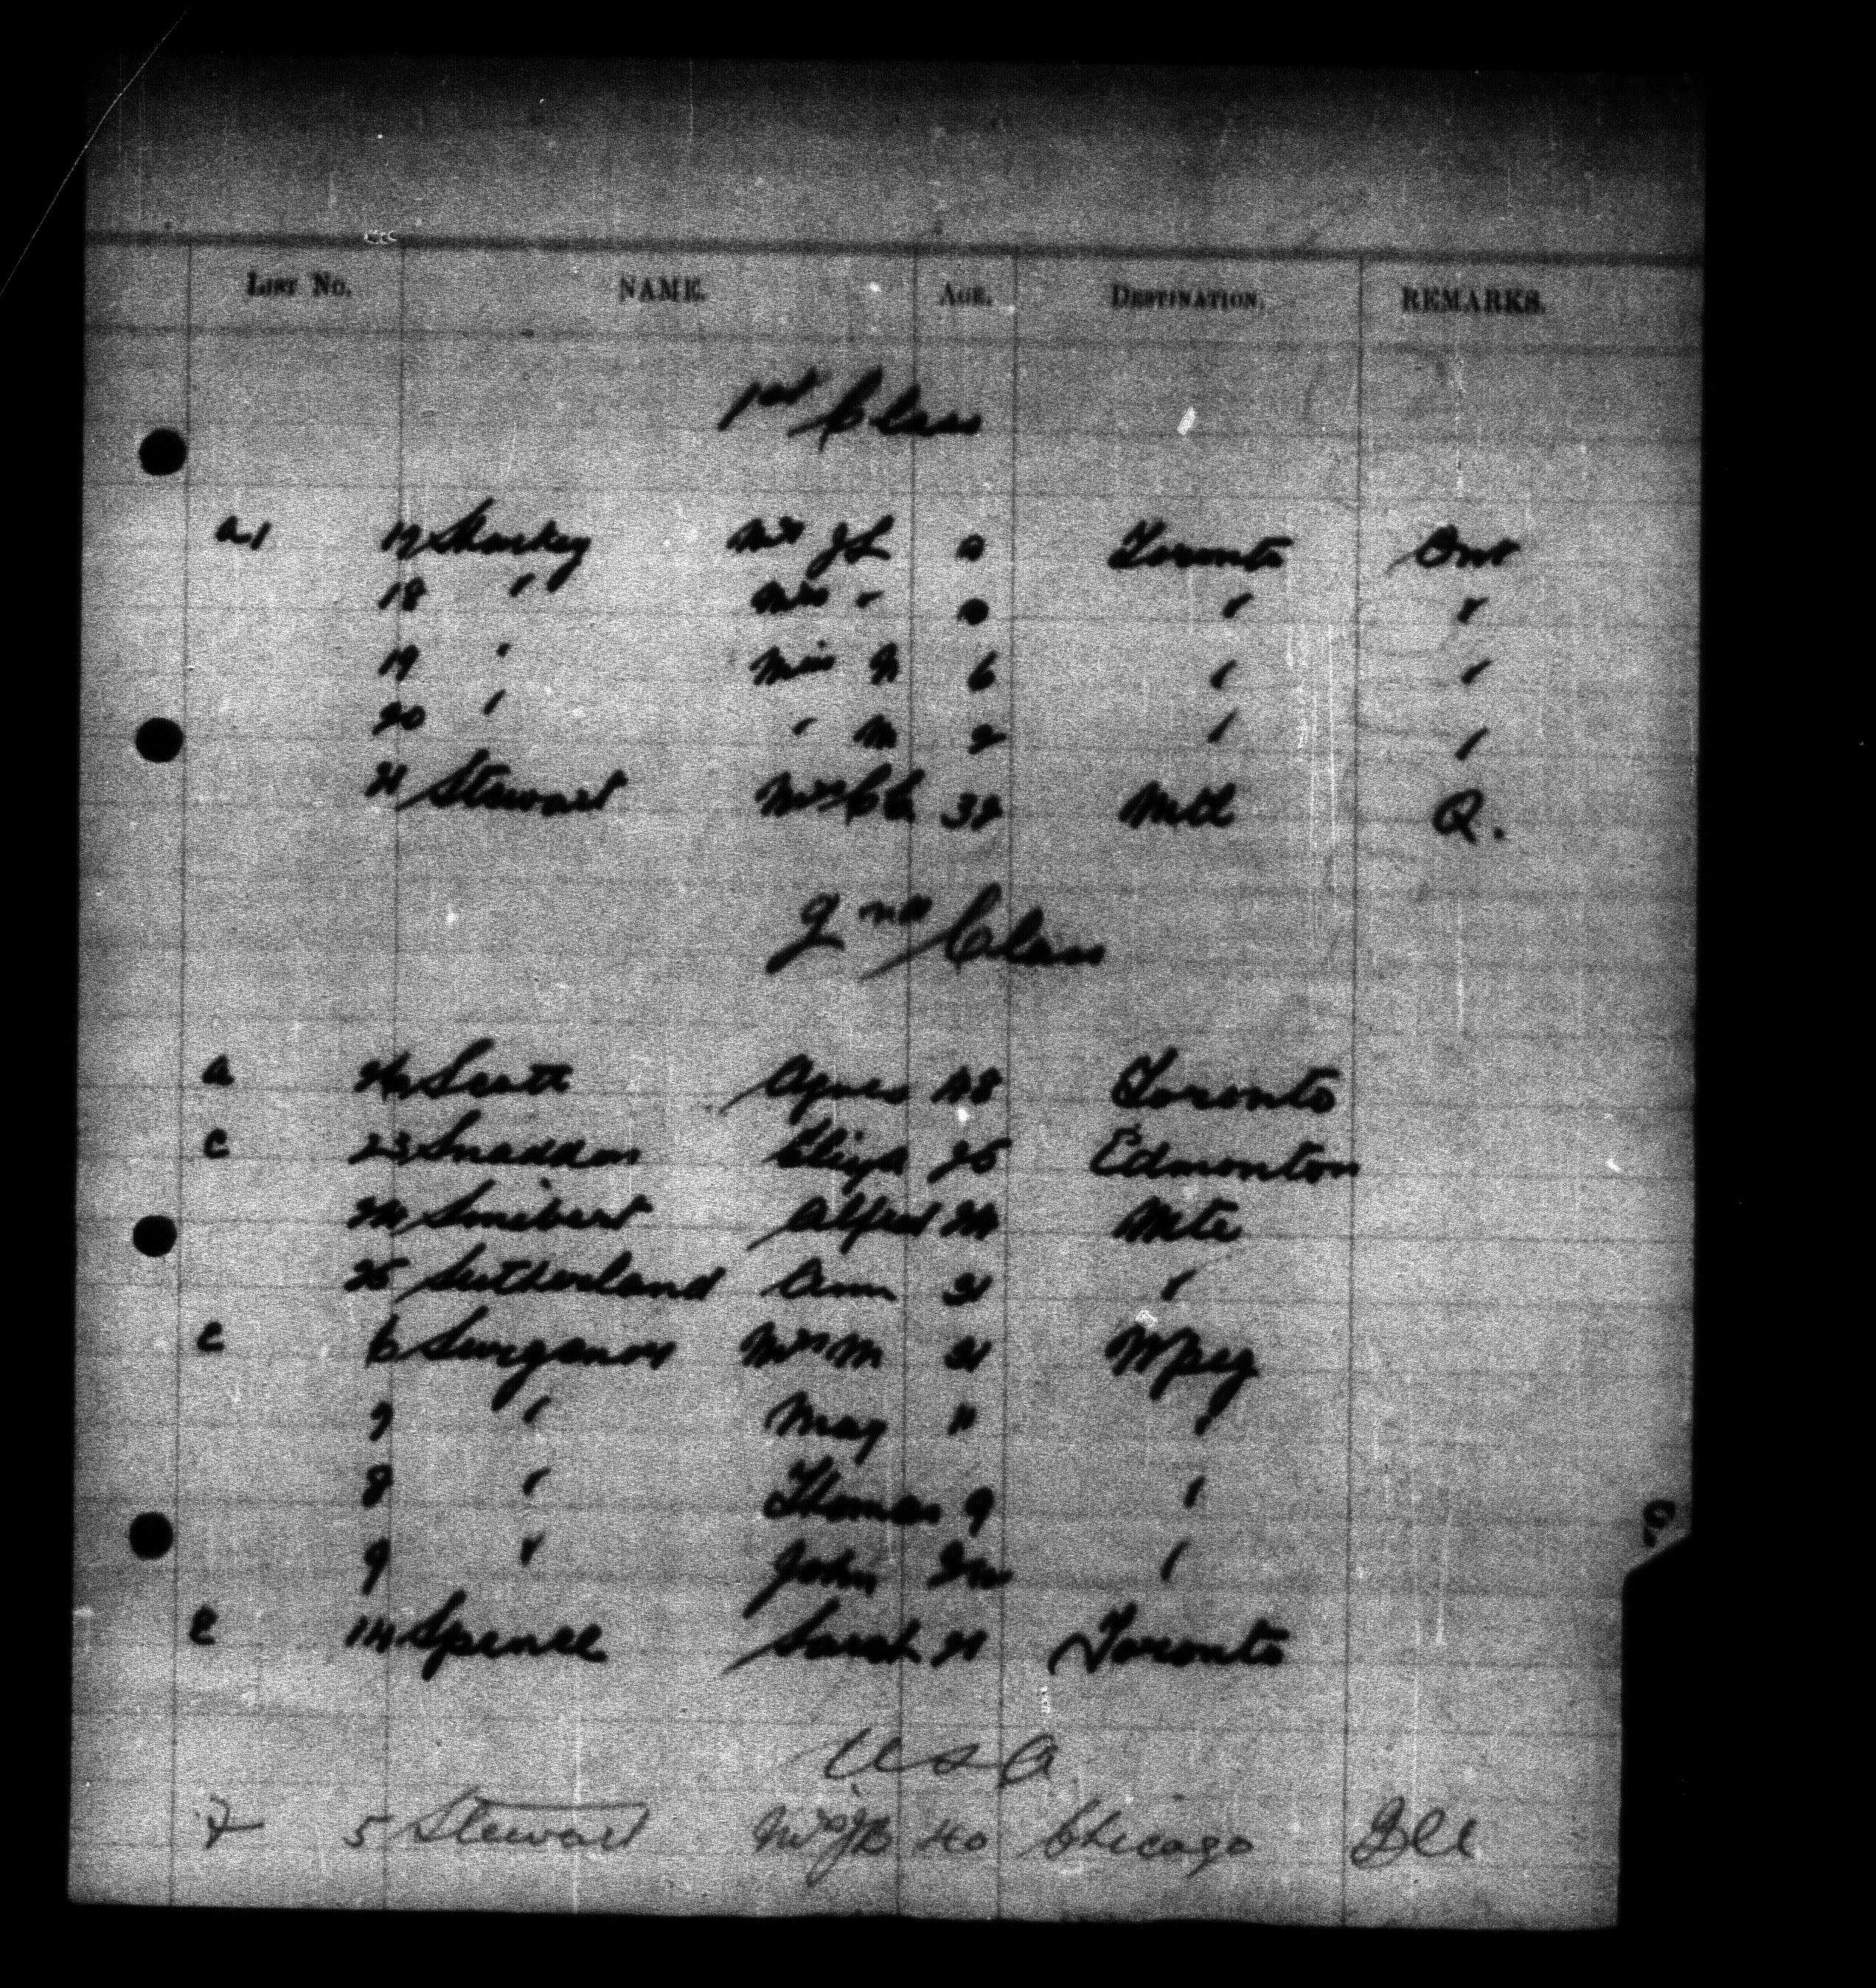 LIST NO. NAME. AGE. DESTINATION. REMARKS.
1st Class
a1 17 Sharkey Mr J L a Toronto Ont
18 " Mrs "  " "
19 " Miss N 6 " "
20 " " M 2 " "
21 Stewart Mrs 32 Mtl Q.
2nd Class
a Scott Agnes 48 Toronto
c 23 Snaddon Eliza 25 Edmonton
24 Smibert Alfred 24 Mtl
25 Sutherland Ann 31 "
c 6 Surgenor Mrs M 31 Wpeg
7 " May 11 "
8 " Thomas 9 "
9 " John "
E 14 Spence Sarah 21 Toronto
USA
7 5 Stewart Mrs J B 40 Chicago Ill